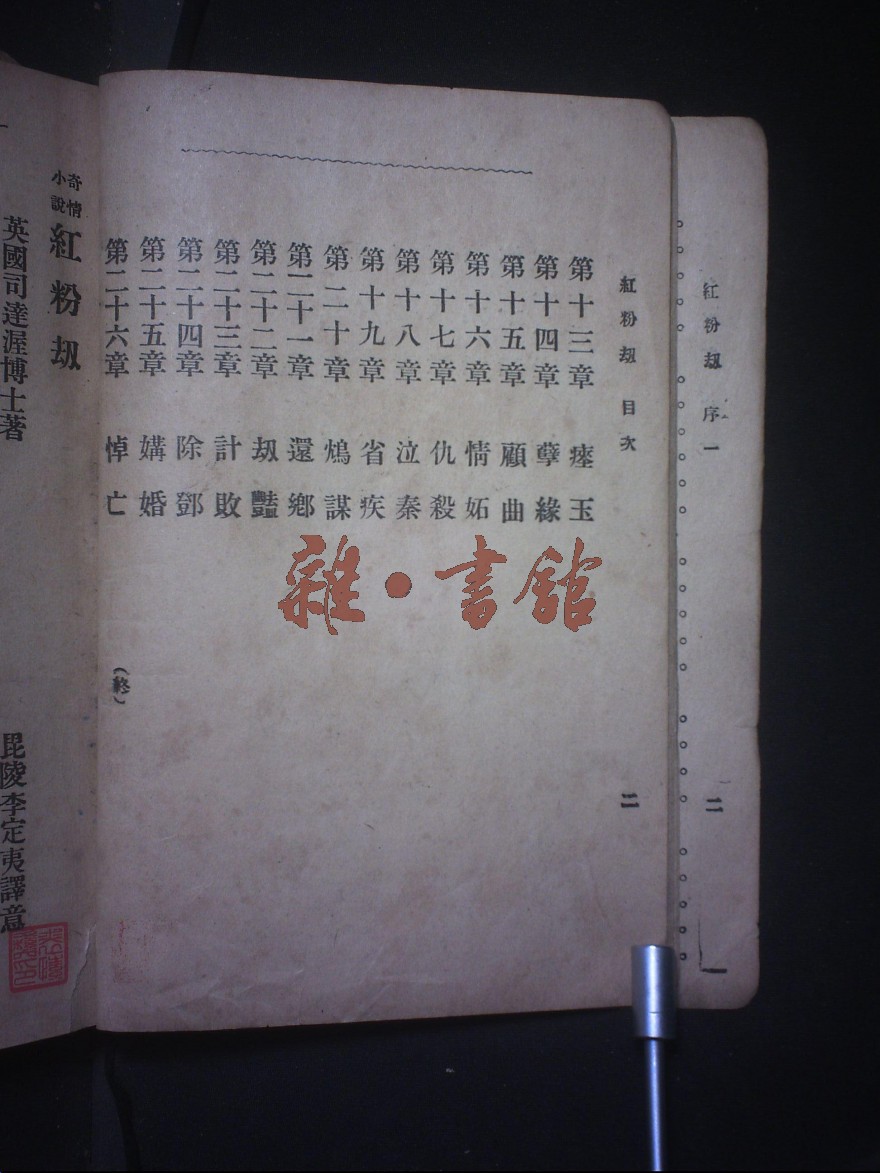 紅粉刼 序一
二
紅粉刼 目次
二
第十三章 瘞玉
第十四章 孽緣
第十五章 顧曲
第十六章 情妬
第十七章 仇殺
第十八章 泣秦
第十九章 省疾
第二十章 鴆謀
第二十一章 還鄉
第二十二章 刼豔
第二十三章 計敗
第二十四章 除鄧
第二十五章 媾婚
第二十六章 悼亡
(終)
雜·書館
奇情小說 紅粉刼
英國司達渥博士著
毘陵李定夷譯意